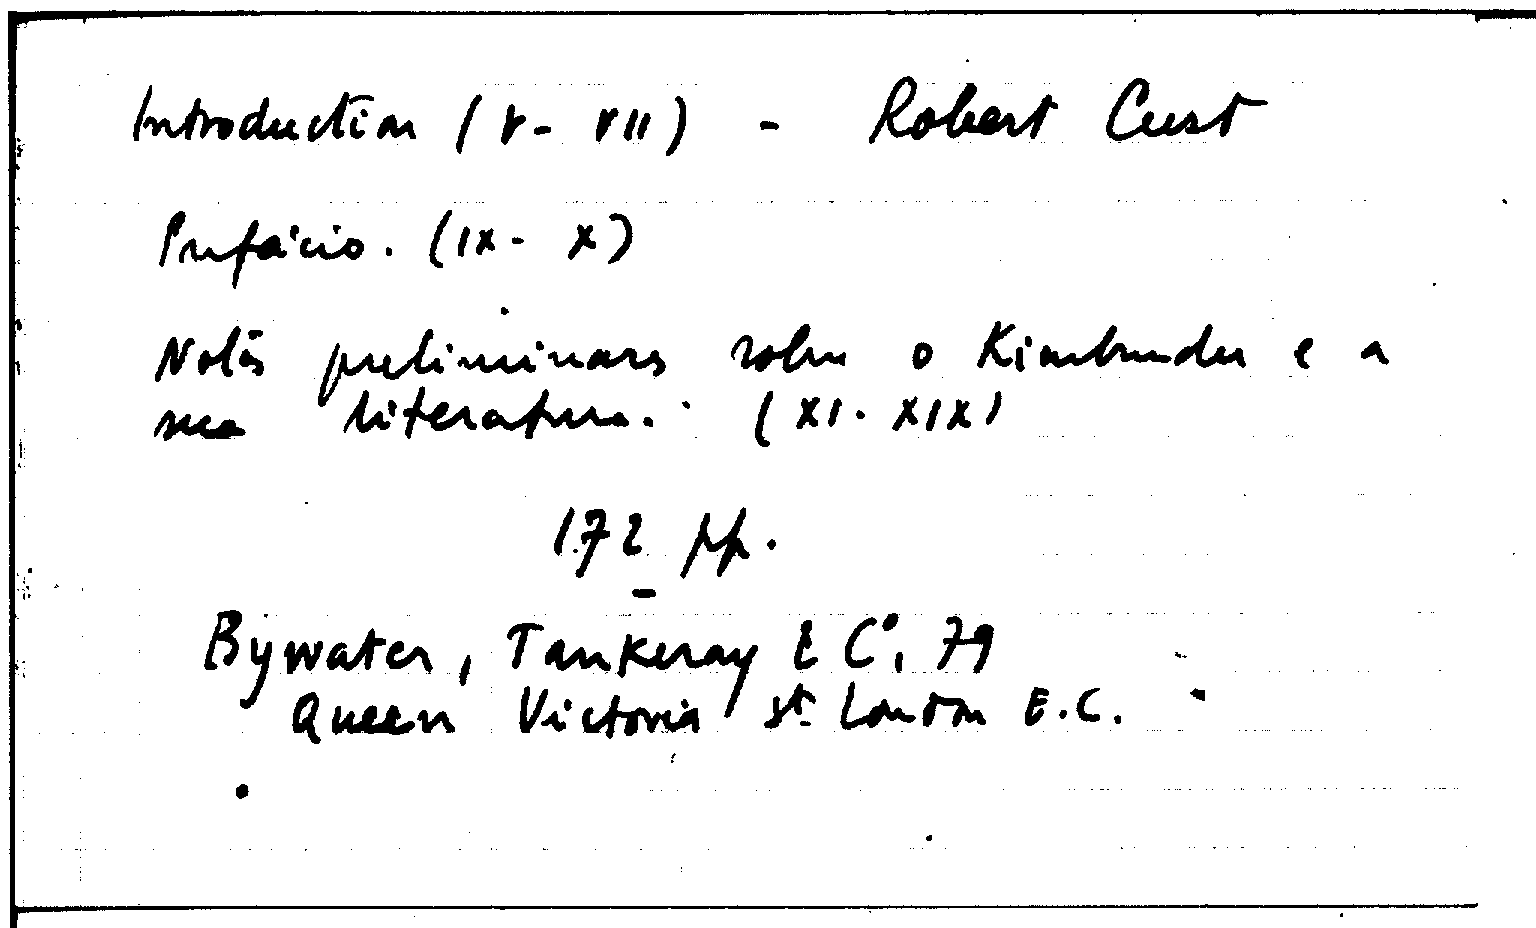 Introduction (V - VII) - Robert Cust
Prefácio. (IX - X)
Notas preliminares sobre o Kimbundu e a
sua literatura. (XI - XIX)
172 pp.
Bywater, Tankeray & Cº, 79
Queen Victoria St. London E.C.